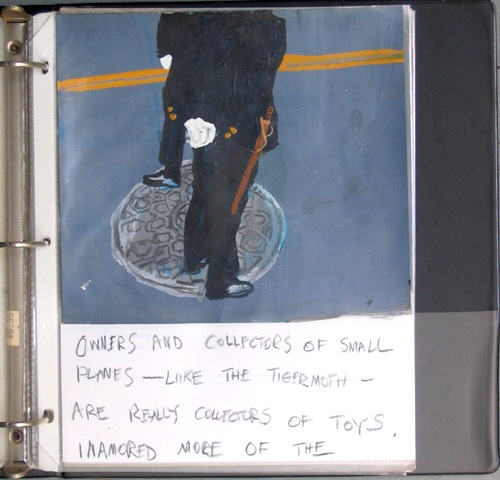 OWNERS AND COLLECTORS OF SMALL
PLANES — LIKE THE TIGERMOTH –
ARE REALLY COLLECTORS OF TOYS.
INAMORED MORE OF THE